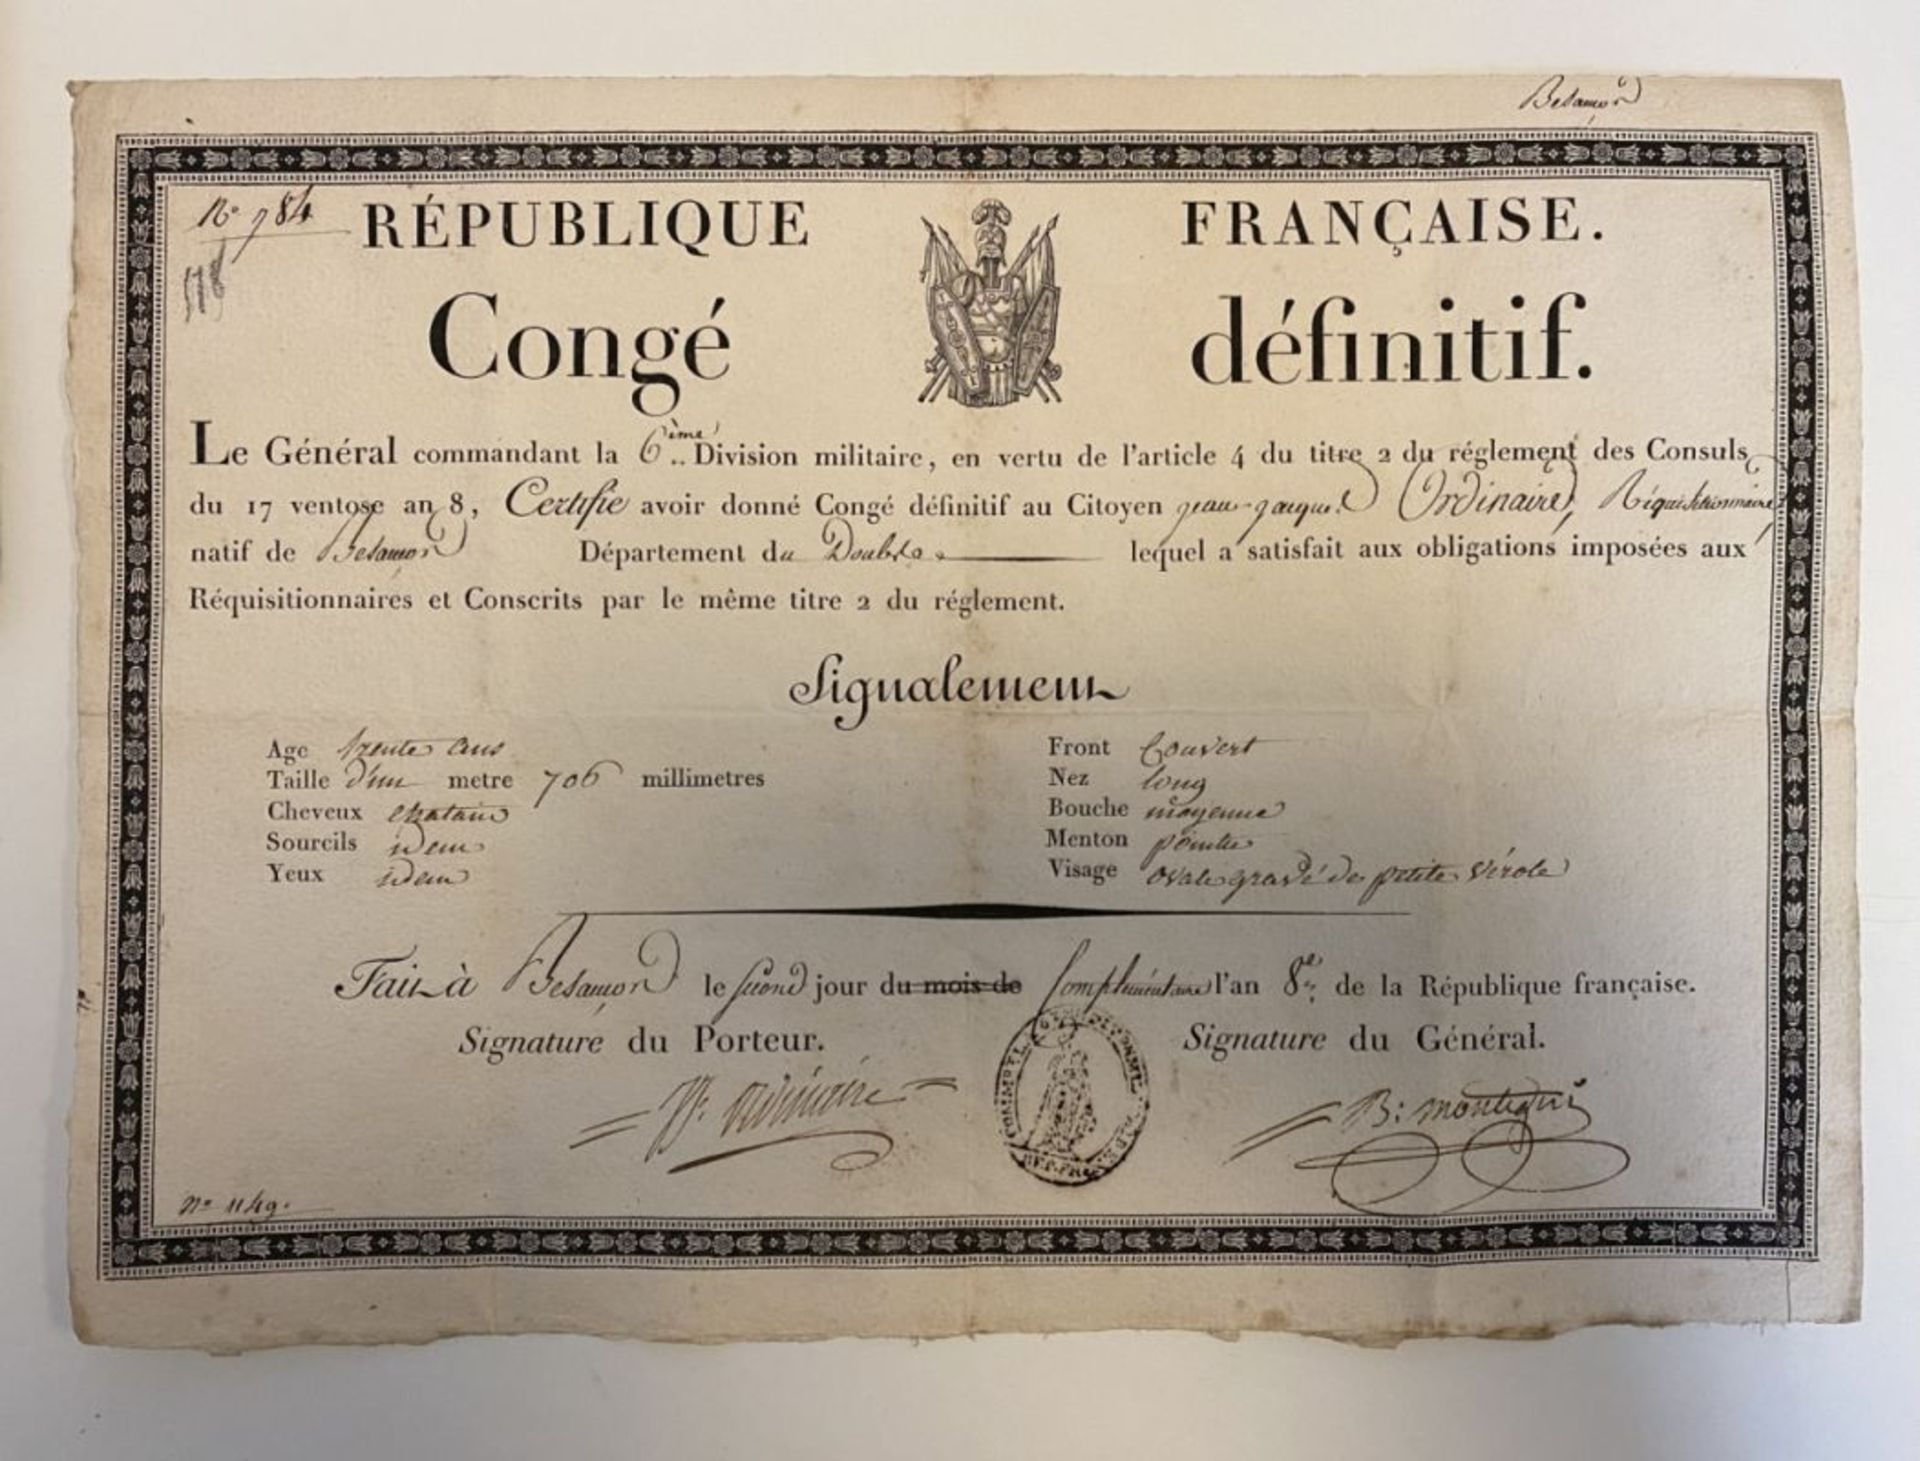 Besançon
No 784
RÉPUBLIQUE FRANÇAISE.
Congé définitif.
Le Général commandant la 6ème Division militaire, en vertu de l'article 4 du titre 2 du réglement des Consuls
du 17 ventose an 8, Certifie avoir donné Congé définitif au Citoyen jean jacques Ordinaire, Réquisitionnaire
natif de Besançon Département du Doubs lequel a satisfait aux obligations imposées aux
Réquisitionnaires et Conscrits par le même titre 2 du réglement.
Signalement
Age trente ans
Taille d'un metre 706 millimetres
Cheveux chatains
Sourcils idem
Yeux idem
Front Couvert
Nez long
Bouche moyenne
Menton pointu
Visage ovale gravé de petite vérole
Fait à Besançon le second jour du mois de Complémentaire l'an 8e de la République française.
Signature du Porteur. Signature du Général.
Ordinaire
B: Montigni
No 1149.